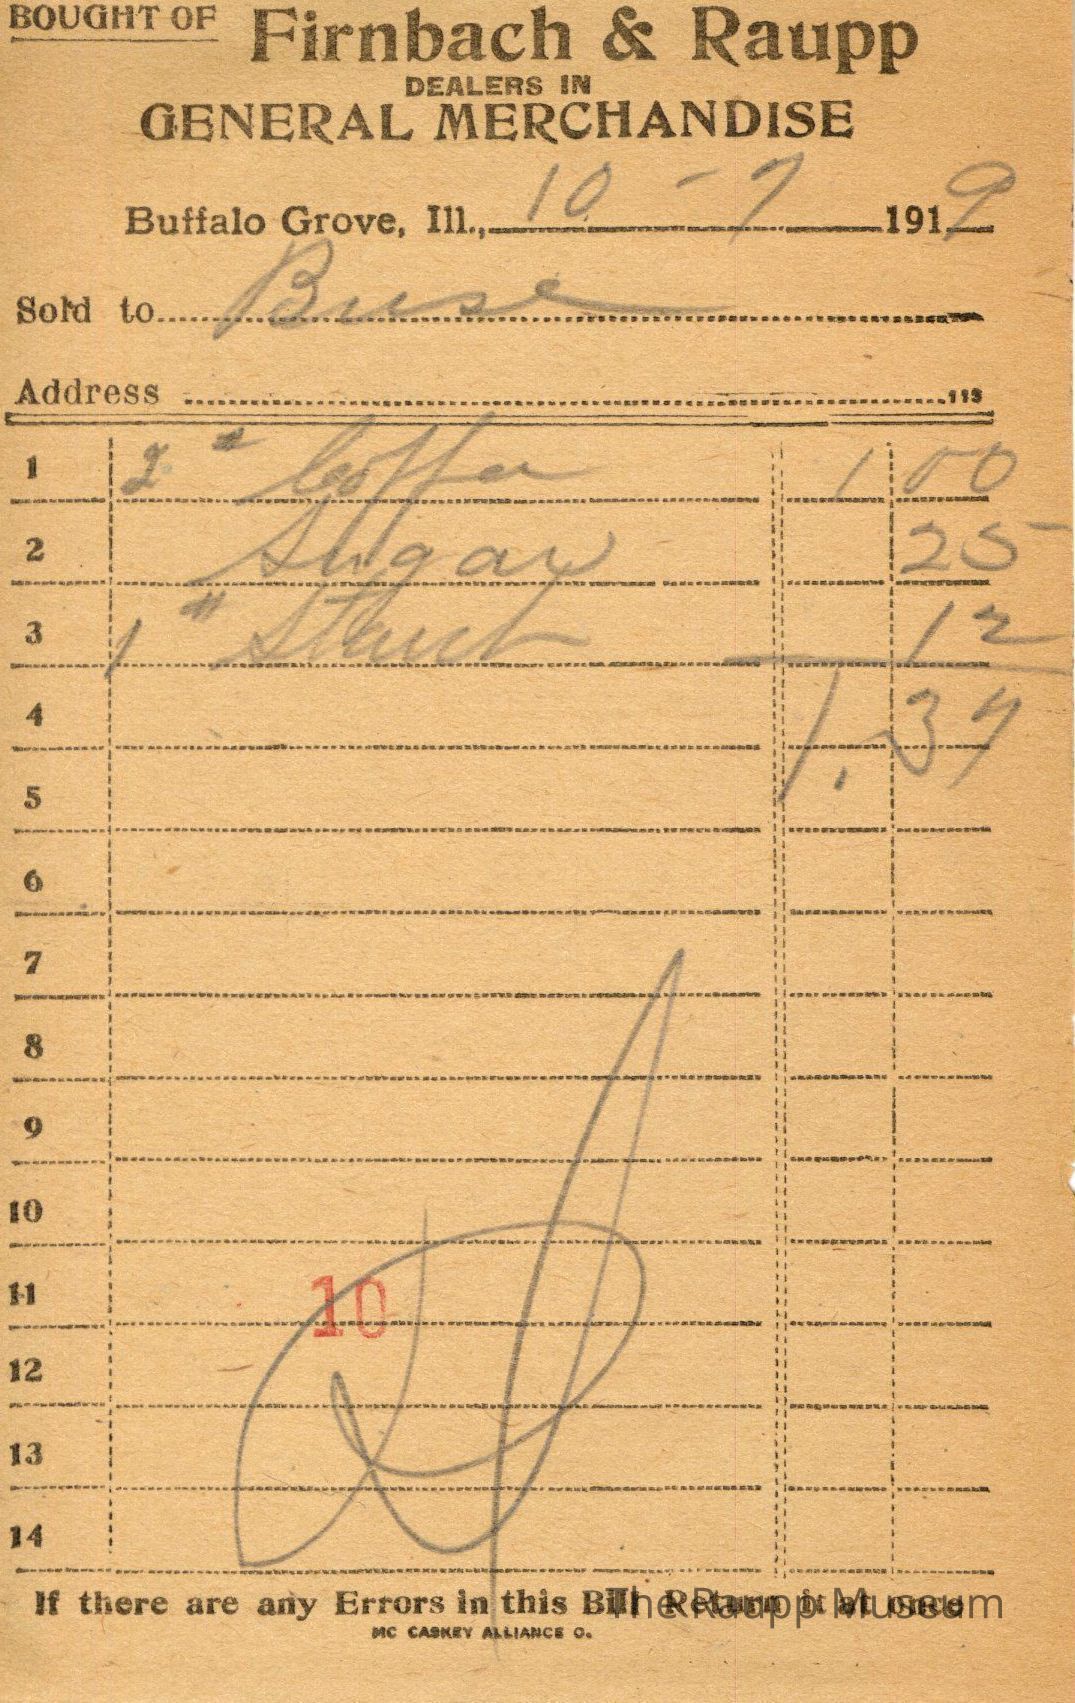 BOUGHT OF Firnbach & Raupp
DEALERS IN
GENERAL MERCHANDISE
Buffalo Grove, Ill., 10 - 7 1919
Sold to Buse
Address
1 2 " Coffee 1 00
2 Sugar 25
3 1 " Starch 12
4 1.37
5
6
7
8
9
10
11 10
12
13
14
If there are any Errors in this Bill Return it at once
The Raupp Museum
MC CASKEY ALLIANCE O.